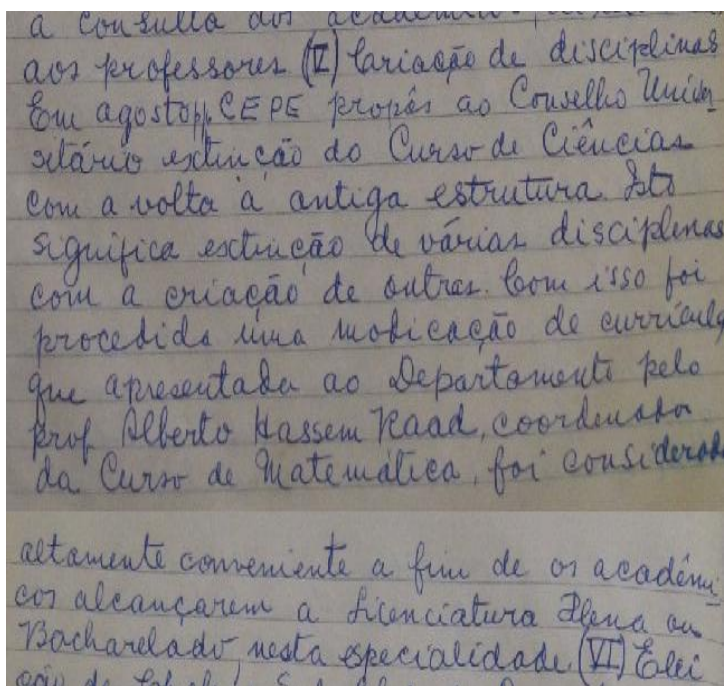 a consulta dos acadêmicos
aos professores (V) Variação de disciplinas
Em agosto pp. CEPE propôs ao Conselho Univer
sitário extinção do Curso de Ciências
com a volta à antiga estrutura. Isto
significa extinção de várias disciplinas
com a criação de outras. Com isso foi
procedida uma modicação de currículo
que apresentada ao Departamento pelo
prof Alberto Hassem Raad, coordenador
da Curso de Matemática, foi considerada
altamente conveniente a fim de os acadêmi
cos alcançarem a Licenciatura Plena ou
Bacharelado, nesta especialidade. (VI) Elei
ção de